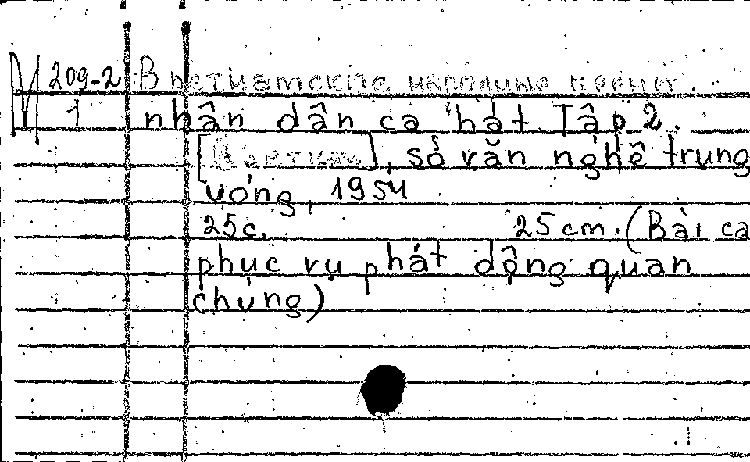 М 209-2 Вьетнамские народные песни.
1 nhân dân ca hát. Tập 2.
[Вьетнам], sở văn nghệ trung
ương, 1954
25с. 25cm. (Bài ca
phục vụ phát động quan
chúng)